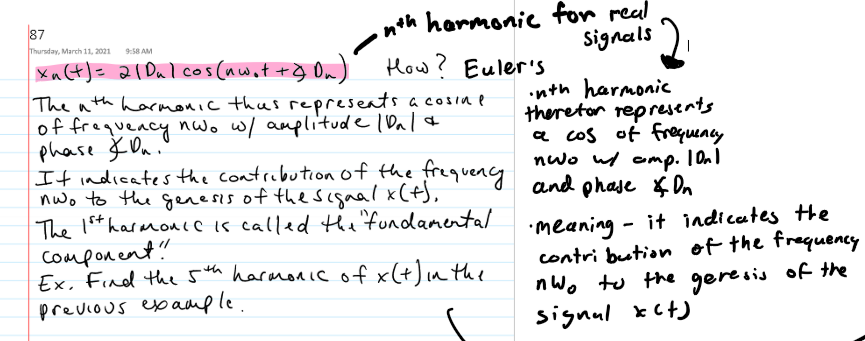 87
Thursday, March 11, 2021 9:58 AM
xn(t) = 2|Dn| cos(nω₀t + ∡Dn)
The nth harmonic thus represents a cosine
of frequency nω₀ w/ amplitude |Dn| &
phase ∡Dn.
It indicates the contribution of the frequency
nω₀ to the genesis of the signal x(t).
The 1st harmonic is called the "fundamental
component".
Ex. Find the 5th harmonic of x(t) in the
previous example.
nth harmonic for real
signals
How? Euler's
·nth harmonic
therefor represents
a cos of frequency
nω₀ w/ amp. |Dn|
and phase ∡Dn
·meaning - it indicates the
contribution of the frequency
nω₀ to the genesis of the
signal x(t)